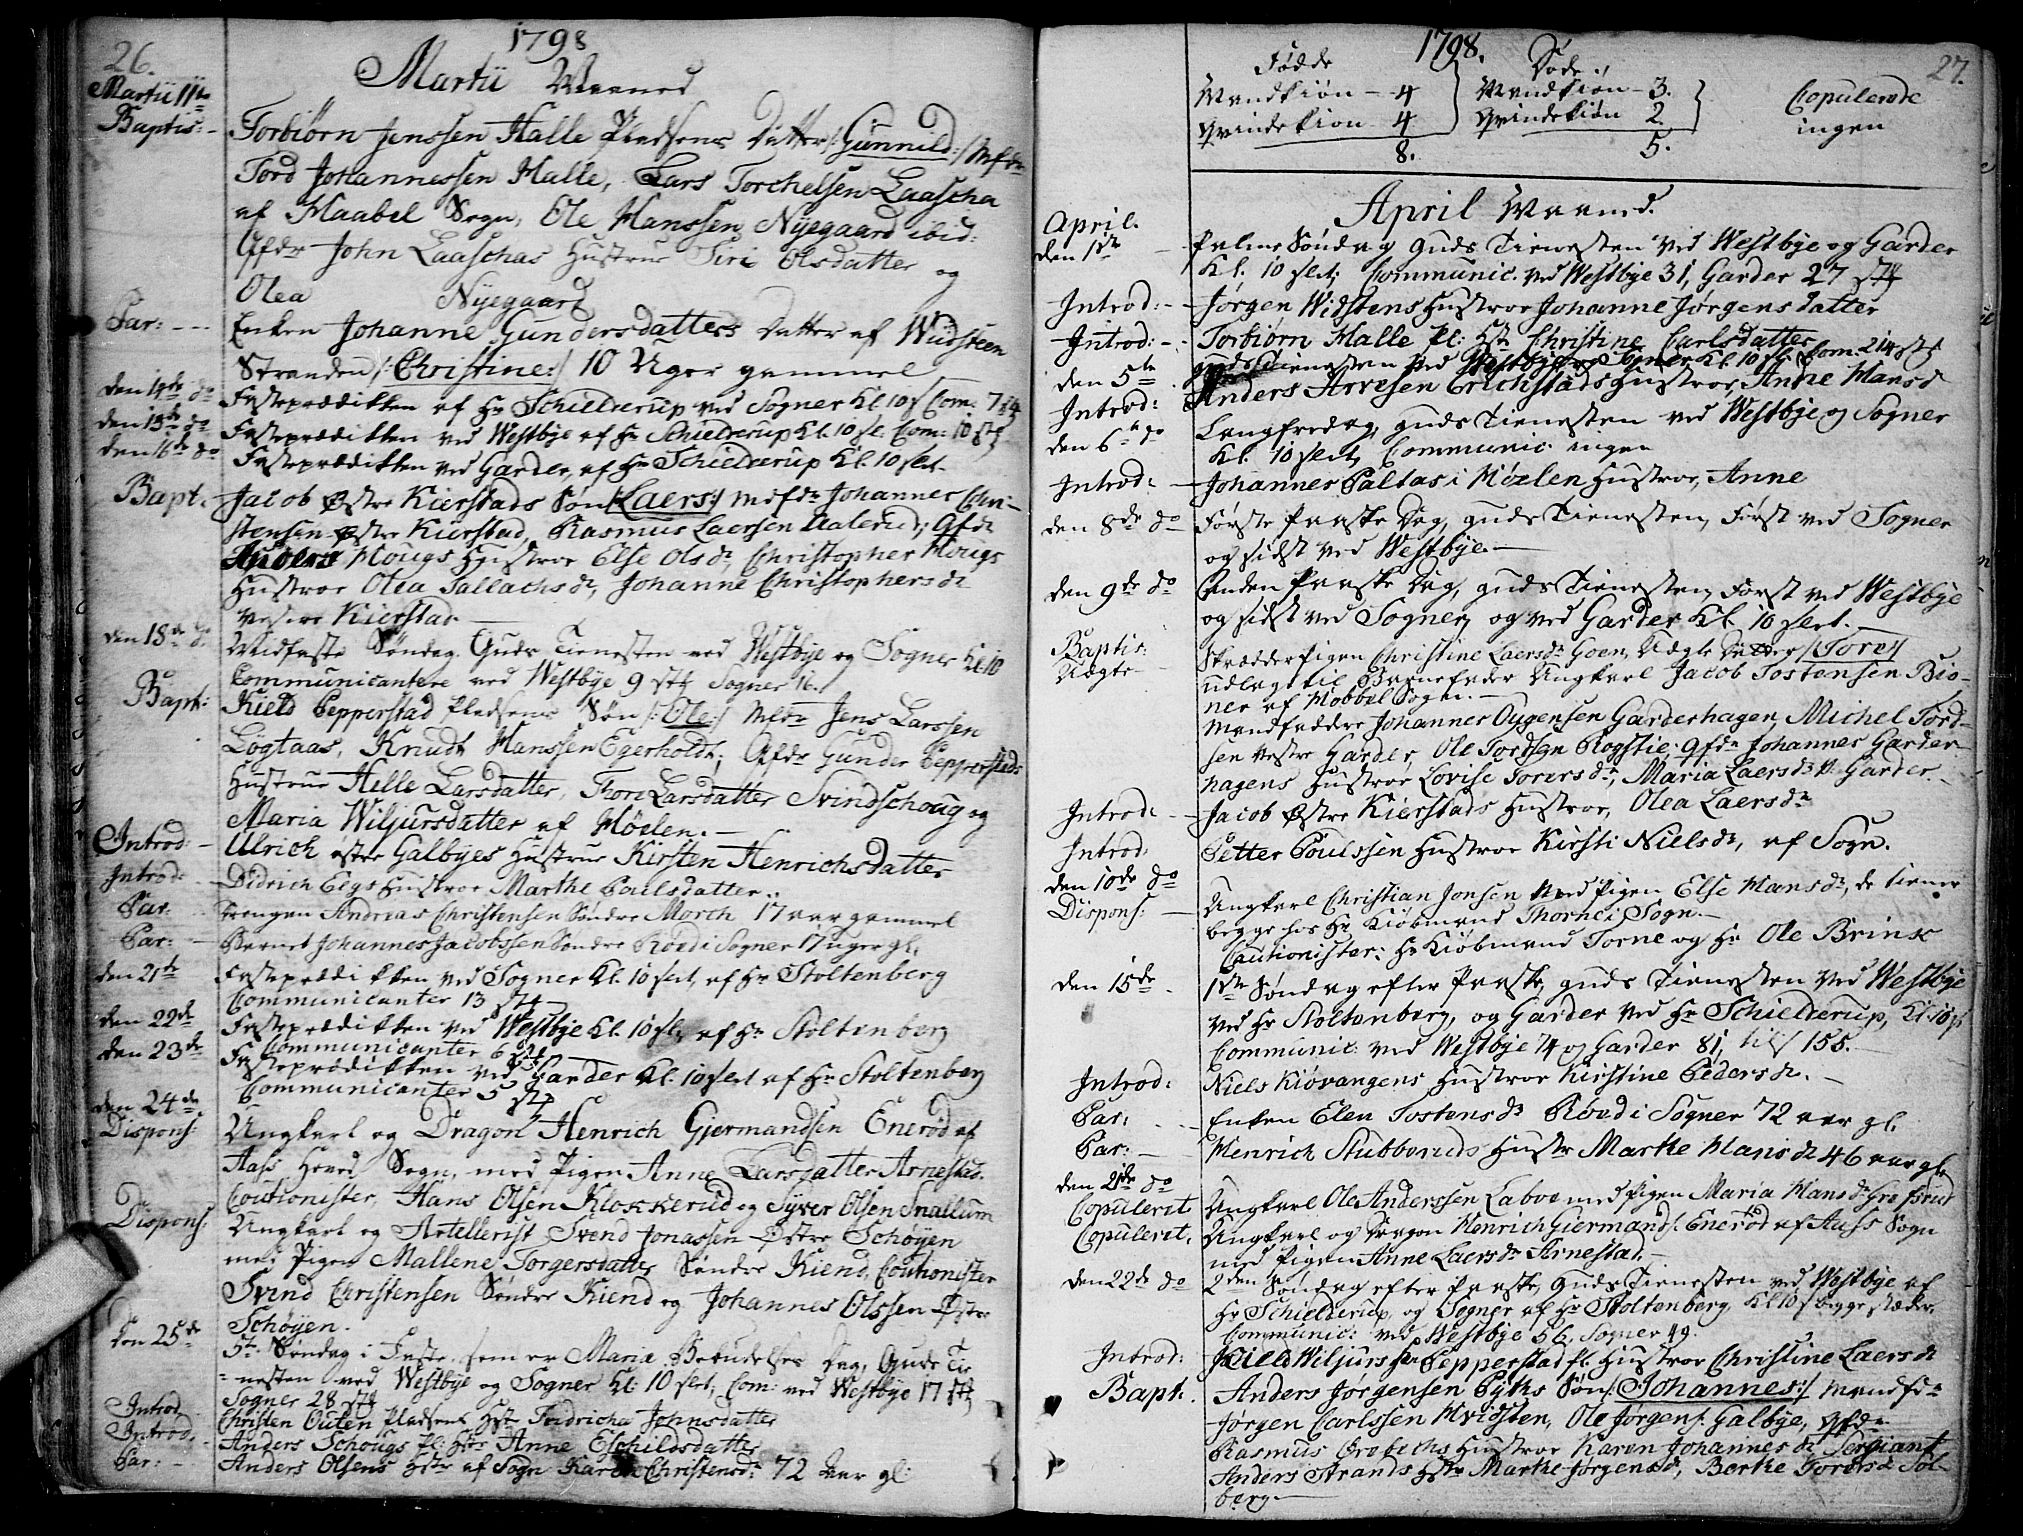 26.
1798
Martii Maaned
Martii 11te
Baptis:
Torbiørn Jenssen Halle Pladsens Datter /:Gunnild:/ Mfdr
Tord Johannessen Halle, Lars Torchelsen Laascha
af Haabel Sogn, Ole Hanssen Nyegaard ibid:
Qfdr John Laaschas Hustrue Siri Olsdatter og
Olea Nyegaard
Par: Enken Johanne Gundersdatters Datter af Wudsteen
Stranden /:Christine:/ 10 Uger gammel
den 14de do Fasteprædikken af Hr Schielderup ved Sogner Kl. 10 Com: 7
den 15de do Fasteprædikken ved Westbye af Hr Schielderup Kl. 10 sl. Com: 10 stk
den 16de do Fasteprædikken ved Garder af Hr Schielderup Kl. 10 slet.
Bapt. Jacob Østre Kierstads Søn /:Laers:/ Mdfdr Johannes Chri-
stensen Østre Kierstad, Rasmus Laersen; Qfdr
Anders Hougs Hustroe Else Olsdr, Christopher Hougs
Hustroe Olea Tallachsdr, Johanne Christophersdr
Vestre Kierstad.
den 18de do Midfaste Søndag, Guds Tienesten ved Westbye og Sogner Kl. 10
Communicantere ved Westbye 9 stk Sogner 16.
Bapt: Kield Pepperstad Pladsens Søn /:Ole:/ Mfdr Jens Larssen
Løgtaas, Knudt Hanssen Egerholdt, Qfdr Gunder Pepperstads
Hustrue Helle Larsdatter, Thore Larsdatter Svindschoug og
Maria Wiljursdatter af Hølen.
Introd: Ulrich østre Galbyes Hustrue Kirsten Henrichsdatter
Introd: Didrich Eegs Hustroe Marthe Poulsdatter.
Par: Drengen Andreas Christensen Søndre Morch 17 aar gammel
Par: Barnet Johannes Jacobssen Søndre Røed i Sogner 17 uger gl.
den 21de Fasteprædikken ved Sogner Kl. 10 slet, af Hr Stoltenberg
Communicanter 13 stk
den 22de Fasteprædikken ved Westbye Kl. 10 sl, af Hr Stoltenberg
Communicanter 6 stk
den 23de Fasteprædikken ved Garder Kl. 10 slet af Hr Stoltenberg
Communicanter 5 stk
den 24de
Dispons: Ungkarl og Dragon Henrich Gjermandsen Enerød af
Aass Hoved Sogn, med Pigen Anne Larsdatter Arnestad.
Coutionister, Hans Olsen Klokkerud og Syver Olsen Snallum
Dispons: Ungkarl og Artellerist Svend Jonassen Østre Schøyen
med Pigen Mallene Torgersdatter Søndre Kiend, Coutionister
Svend Christensen Søndre Kiend og Johannes Olssen Østre
Schøyen.
den 25de 5te Søndag i Faste, som er Mariæ Bebudelses Dag, Guds Tie-
nesten ved Westbye og Sogner Kl: 10 slet, Com: ved Westbye 17 stk
Sogner 28 stk
Introd. Christen Outen Pladsens Hstr Fridricha Johnsdatter
Introd. Anders Schougs Pl: Hstr Anne Eschildsdatter
Par: Anders Olsens Hstr af Sogn Karen Christensdr: 72 Aar gl:
27.
1798.
Fødde
Mandkiøn - 4
Qvindekiøn 4
8.
Døde
Mandkiøn - 3.
Qvindekiøn 2
5.
Copulerede
ingen
April Maaned.
April.
den 1ste Palme Søndag Guds Tienesten ved Westbye og Garder
Kl. 10 slet; Communic. ved Westbye 31, Garder 27 stk
Introd: Jørgen Widstens Hustroe Johanne Jørgensdatter
Introd: Torbiørn Halle Pl: Hstr Christine Carlsdatter
den 5te Guds Tienesten ved Sogner Kl. 10 sl: Com: 214 stk
Introd: Anders Arvesen Erichstads Hustroe, Anne Hansdr
den 6te do Langfredag, Guds Tienesten ved Westbye og Sogner
Kl. 10 slet, Communic: ingen
Introd: Johannes Paltas i Hølen Hustroe, Anne
den 8de do Første Paaske Dag, Guds Tienesten, Først ved Sogner
og sidst ved Westbye.
den 9de do Anden Paaske Dag, Guds Tienesten, Først ved Westbye
og sidst ved Sogner, og ved Garder Kl. 10 slet.
Baptis: Skrædderpigen Christine Laersdr Goen, Uægte Datter /:Tore:/
Uægte udlagt til Barnefader Ungkarl Jacob Tostensen Biø-
ner af Hobbel Sogn.
Mandfaddere Johannes Oygensen Garderhagen, Michel Tord-
sen Vestre Garder, Ole Tordsen Rogstie. Qfdr Johannes Garder-
hagens Hustroe Lovise Torersdr, Maria Laersdr V. Garder
Introd: Jacob Østre Kierstads Hustroe, Olea Laersdr
Introd: Petter Poulssen Hustroe Kirsti Nielsdr, af Sogn.
den 10de do
Dispons: Ungkarl Christian Jonsen med Pigen Else Hansdr, de tiener
begge hos Hr Kiøbmand Thorne i Sogn.
Cautionister: Hr Kiøbmand Torne og Hr Ole Brink
den 15de 1ste Søndag efter Paaske, Guds Tienesten ved Westbye
ved Hr Stoltenberg, og Garder ved Hr Schielderup, Kl. 10
Communic: ved Westbye 74 og Garder 81, til 155.
Introd: Niels Kiøvangens Hustroe Kirstine Pedersdr.
Par: Enken Elen Tostensdr Røed i Sogner 72 aar gl.
Par: Henrich Stubberuds Hustr Marthe Hansdr 46 aar gl
den 21de do
Copuleret Ungkarl Ole Anderssen Laboe med Pigen Maria Hansdr
Copuleret. Ungkarl og Dragon Henrich Giermands: Enerød af Aass Sogn
med Pigen Anne Laersdr Arnestad.
den 22de do 2den Søndag efter Paaske, Guds Tienesten ved Westbye af
Hr Schielderup, og Sogner af Hr Stoltenberg, Kl. 10 begge stæder,
Communic: ved Westbye 56, Sogner 49.
Introd: Kield Wiljurssen Pepperstad Pl. Hustroe Christine Laersdr
Bapt. Anders Jørgensen Pyths Søn /:Johannes:/ Mandfdr
Jørgen Carlssen Hvidsten, Ole Jørgens: Galbye, Qfdr
Rasmus Grobechs Hustroe Karen Johannesdr Sergiant
Anders Strands Hstr Marthe Jørgensdr, Berthe Torersdr Sol-
berg.